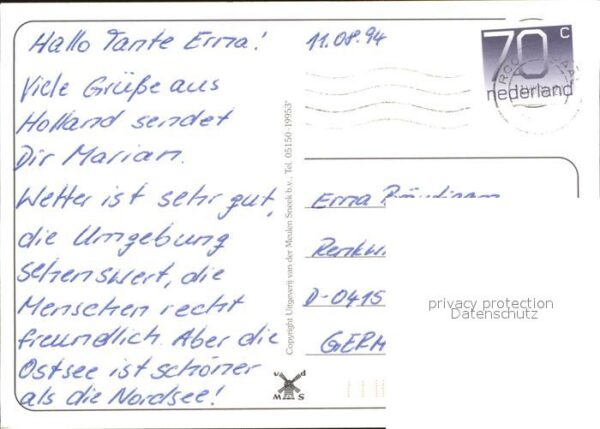 Hallo Tante Erna!
11.08.94
Viele Grüße aus
Holland sendet
Dir Marian.
Wetter ist sehr gut,
die Umgebung
sehenswert, die
Menschen recht
freundlich. Aber die
Ostsee ist schöner
als die Nordsee!
Copyright Uitgeverij van der Meulen Sneek b.v., Tel. 05150-19953*
v d
M S
70 c
nederland
Erna
D-0415
GERM
privacy protection
Datenschutz